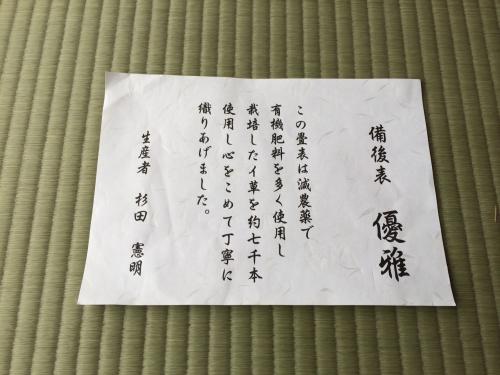 備後表 優雅
この畳表は減農薬で
有機肥料を多く使用し
栽培したイ草を約七千本
使用し心をこめて丁寧に
織りあげました。
生産者 杉田 憲明